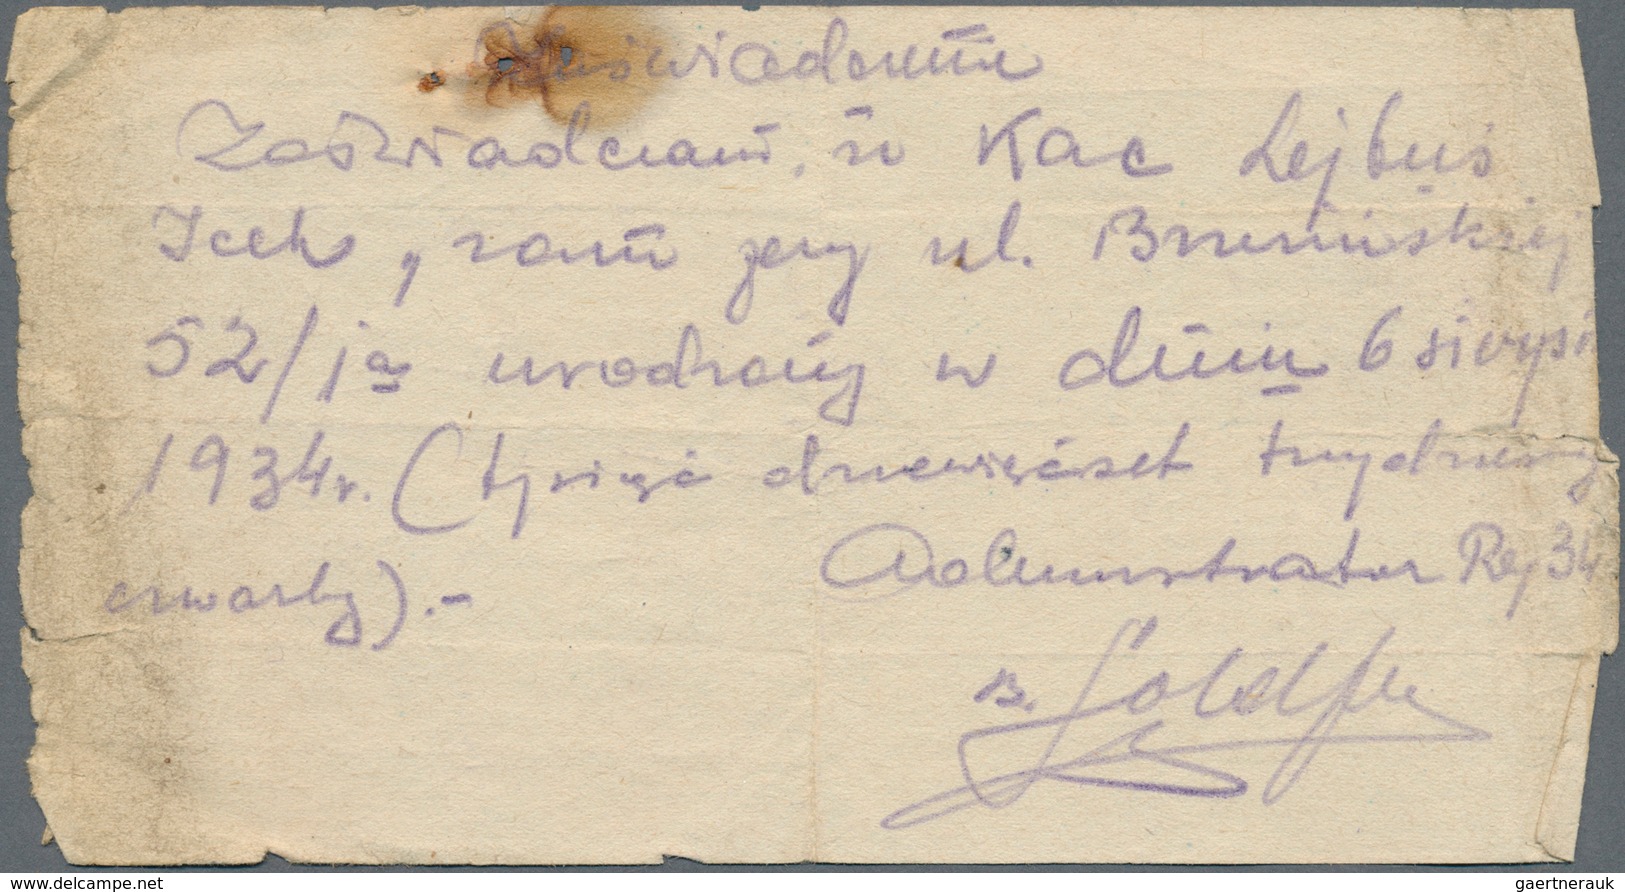 Zaświadczenie
Zaświadczam, że Kac Lejbuś
Icek, zam przy ul. Brzezińskiej
52/ja urodzony w dniu 6 sierpń
1934r. (tysiąc dziewięćset trzydziesty
czwarty).-
Administrator Rej 34
B. Goldf
www.delcampe.net
gaertnerauk